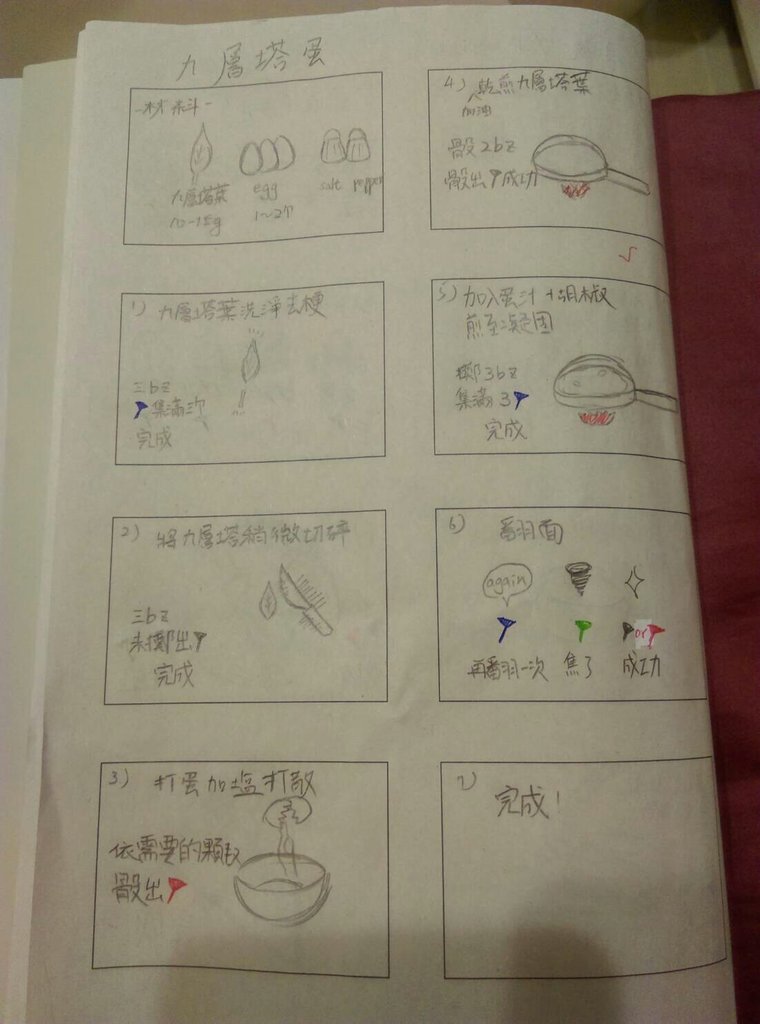 九層塔蛋
-材料-
九層塔葉 egg salt pepper
10-15g 1~2個
1) 九層塔葉洗淨去梗
三bz
集滿次
完成
2) 將九層塔稍微切碎
三bz
未擲出
完成
3) 打蛋加塩打散
依需要的顆數
骰出
4) 乾煎九層塔葉
加油
骰2bz
骰出 成功
5) 加入蛋汁+胡椒
煎至凝固
擲3bz
集滿3
完成
6) 翻面
again
or
再翻一次 焦了 成功
7) 完成!